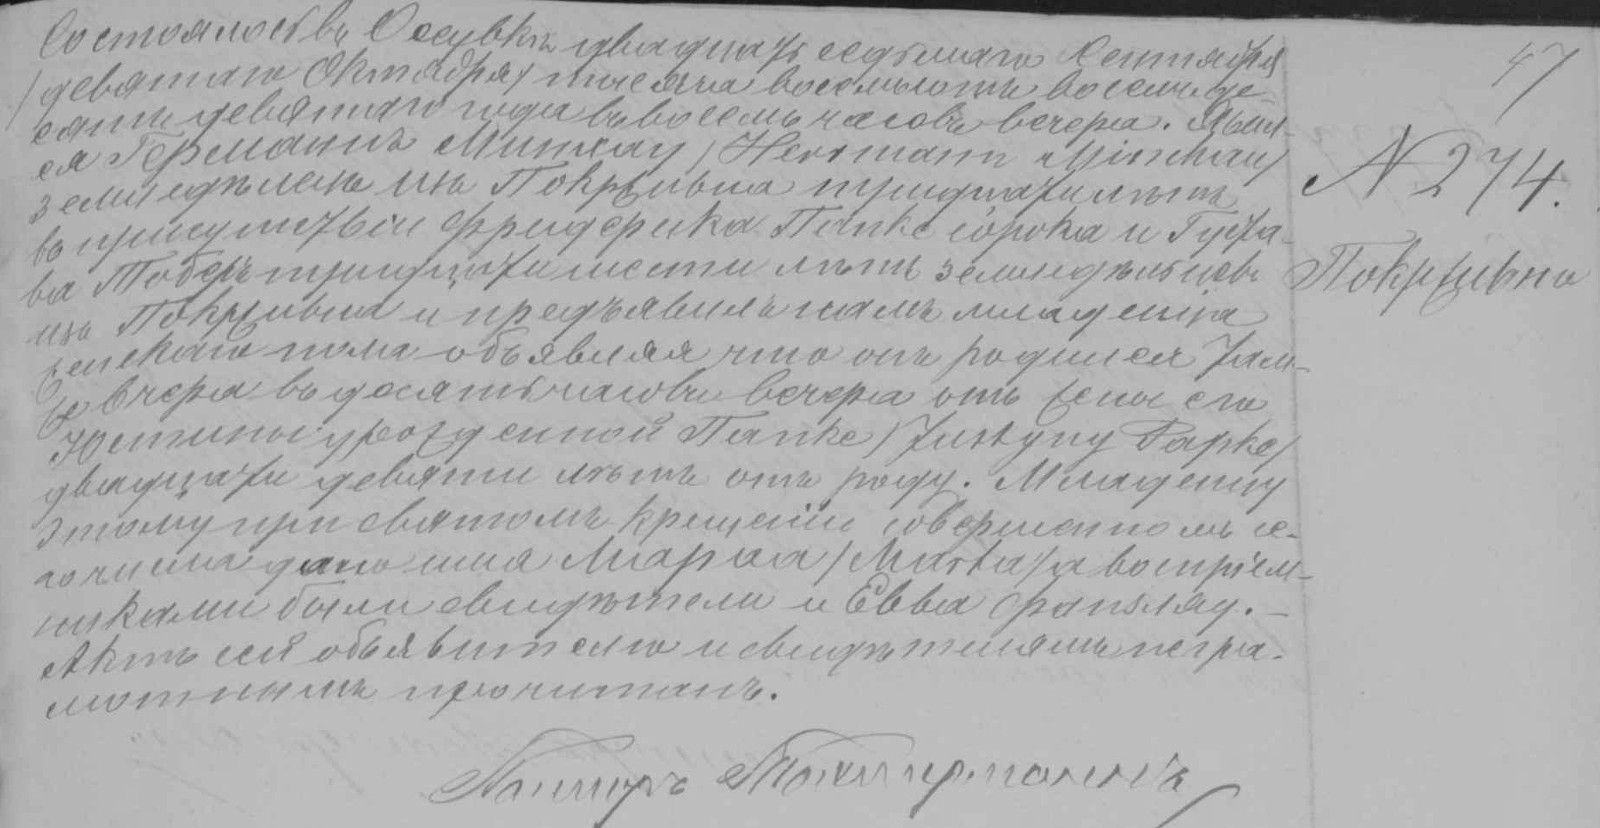 Состоялось въ Осувкѣ двадцать седьмаго Сентября
/девятаго Октября/ тысяча восемьсотъ восемьде-
сятъ девятаго года въ восемь часовъ вечера. Явил-
ся Германъ Минхау /Herrmann Minchau/
земледѣлецъ изъ Покрживна тридцати лѣтъ
въ присутствіи Фридерика Папке сорока и Густа-
ва Тоберъ тридцати шести лѣтъ земледѣльцевъ
изъ Покрживна и предъявилъ намъ младенца
женскаго пола объявляя что онъ родился там-
же вчера въ десять часовъ вечера отъ жены его
Юстины урожденной Папке /Justyny Papke/
двадцати девяти лѣтъ отъ роду. Младенцу
этому при святомъ крещеніи совершенномъ се-
го числа дано имя Марѳа /Marta/ а воспріем-
никами были свидѣтели и Евва Франзляд. -
Актъ сей объявителю и свидѣтелямъ негра-
мотнымъ прочитанъ.
Пасторъ
47
N 274.
Покрживно